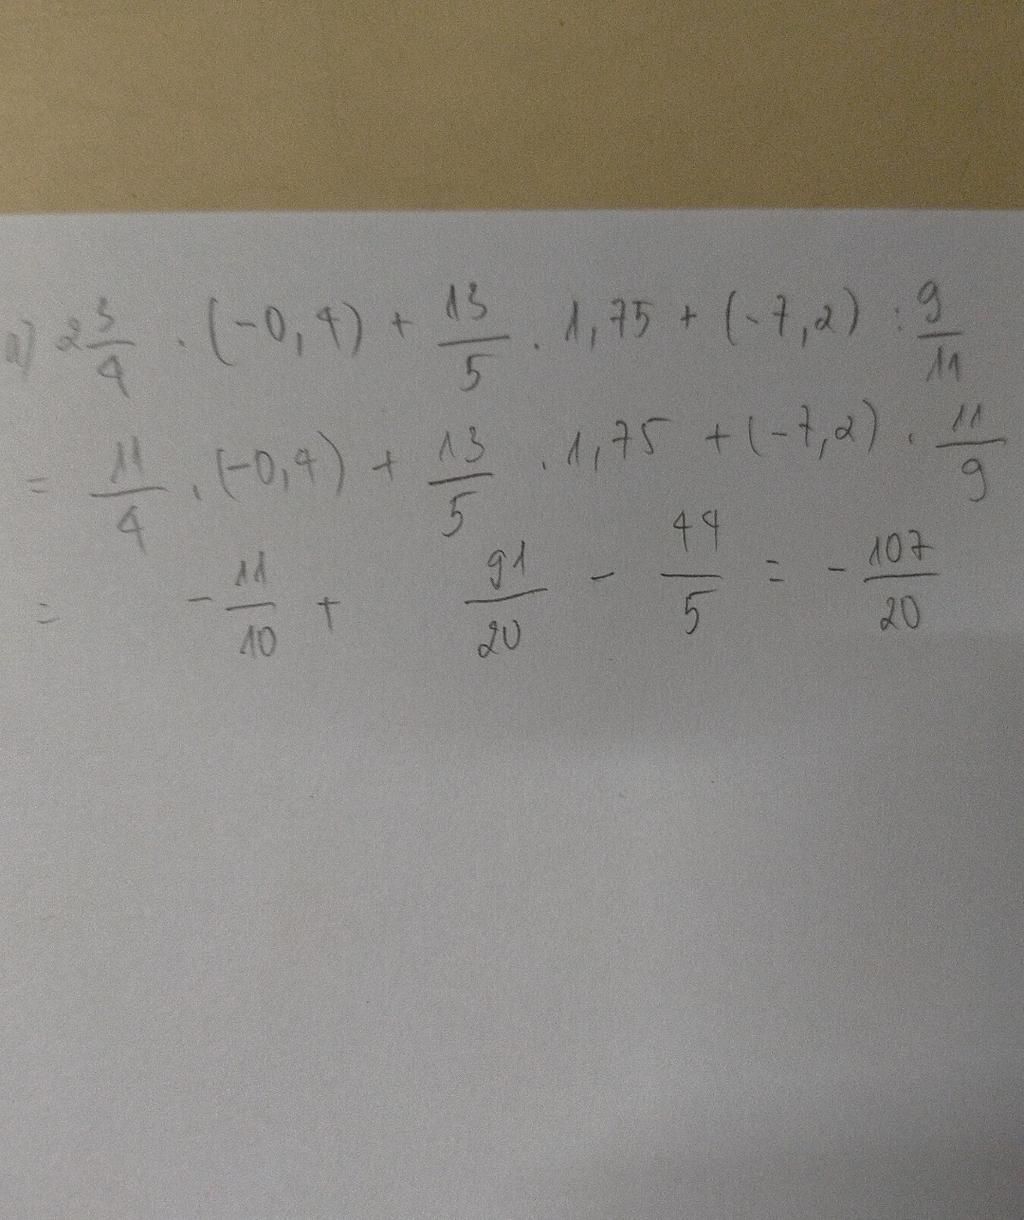 a) 2 3/4 . (-0,4) + 13/5 . 1,75 + (-7,2) : 9/11
= 11/4 . (-0,4) + 13/5 . 1,75 + (-7,2) . 11/9
= - 11/10 + 91/20 - 44/5 = - 107/20